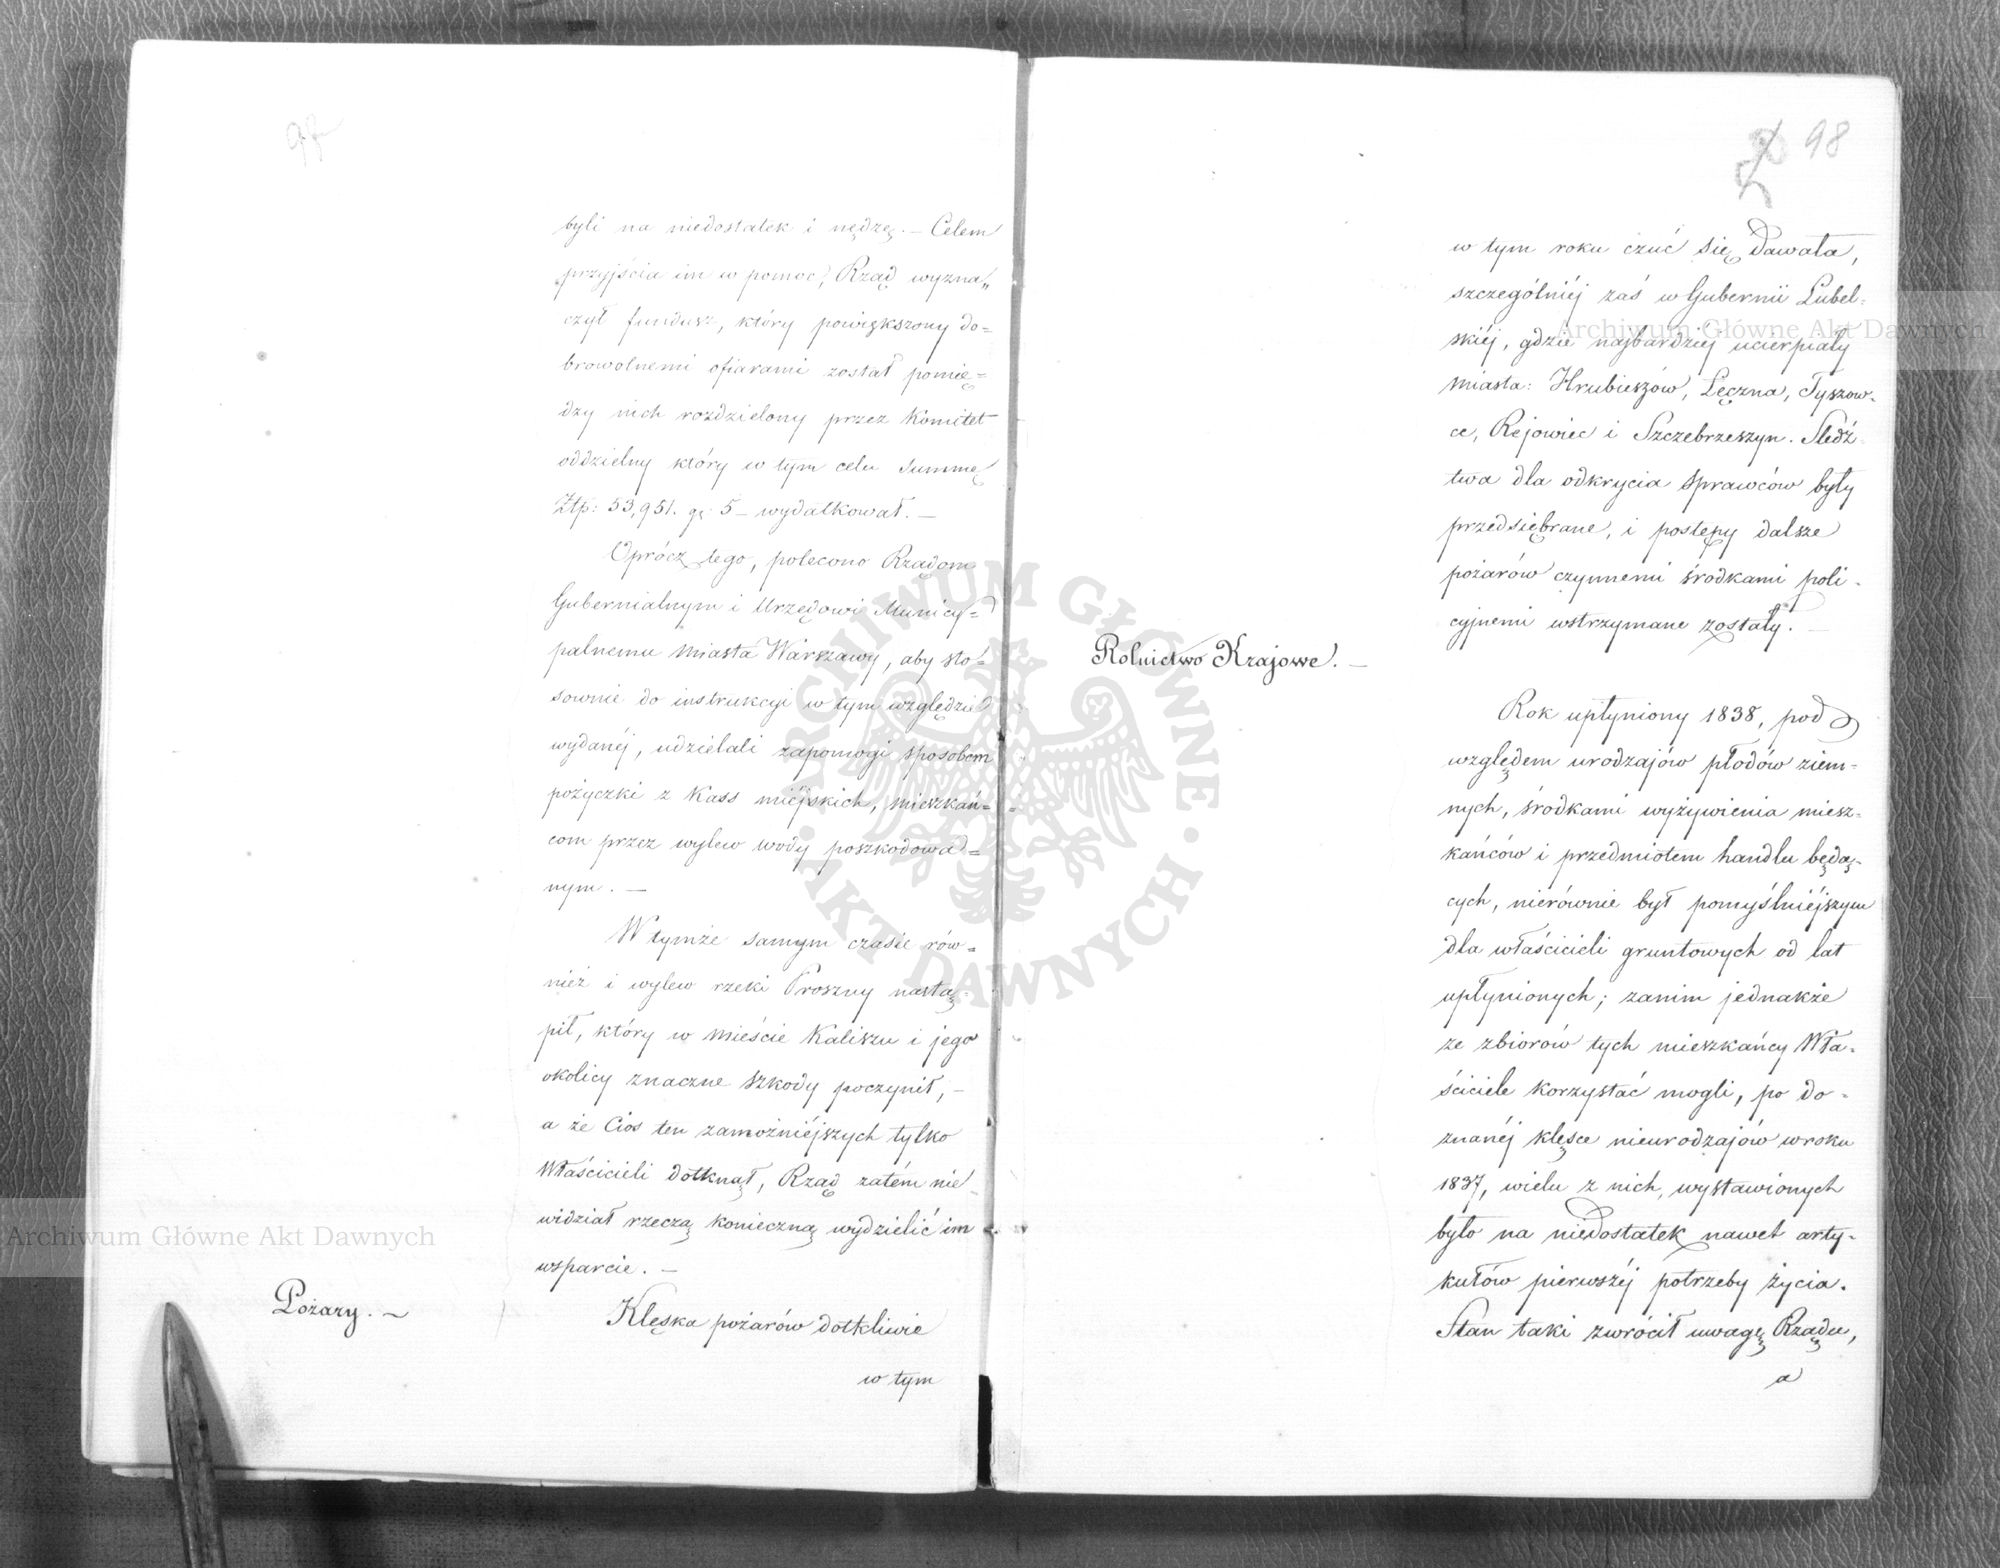 97
byli na niedostatek i nędzę. — Celem
przyjścia im w pomoc, Rząd wyzna„
czył fundusz, który powiększony do=
browolnemi ofiarami został pomię=
dzy nich rozdzielony przez Komitet
oddzielny który w tym celu summę
Złp: 53,951. gr: 5 – wydatkował. —
Oprócz tego, polecono Rządom
Gubernialnym i Urzędowi Municy=
palnemu Miasta Warszawy, aby sto=
sownie do instrukcyi w tym względzie
wydanéj, udzielali zapomogi sposobem
pożyczki z Kass miejskich, mieszkań=
com przez wylew wody poszkodowa=
nym. —
W tymże samym czasie rów=
nież i wylew rzeki Prosny nastą=
pił, który w Mieście Kaliszu i jego
okolicy znaczne szkody poczynił, –
a że Cios ten zamożniéjszych tylko
Właścicieli dotknął, Rząd zatém nie
widział rzeczą konieczną wydzielić im
wsparcie. —
Pożary. —
Klęska pożarów dotkliwie
w tym
98
w tym roku czuć się dawała,
szczególniéj zaś w Gubernii Lubel-
skiéj, gdzie najbardziej ucierpiały
Miasta: Hrubieszów, Łęczna, Tyszow-
ce, Rejowiec i Szczebrzeszyn. Śledz-
twa dla odkrycia sprawców były
przedsiębrane, i postępy dalsze
pożarów czynnemi środkami poli-
cyjnemi wstrzymane zostały. —
Rolnictwo Krajowe. —
Rok upłyniony 1838, pod
względem urodzajów płodów ziem-
nych, środkami wyżywienia miesz-
kańców i przedmiotem handlu będą-
cych, nierównie był pomyślniéjszym
dla właścicieli gruntowych od lat
upłynionych; zanim jednakże
ze zbiorów tych mieszkańcy Wła-
ściciele korzystać mogli, po do-
znanéj klęsce nieurodzajów w roku
1837, wielu z nich, wystawionych
było na niedostatek nawet arty-
kułów pierwszéj potrzeby życia.
Stan taki zwrócił uwagę Rządu,
a
Archiwum Główne Akt Dawnych
Archiwum Główne Akt Dawnych
ARCHIWUM GŁÓWNE · AKT DAWNYCH ·